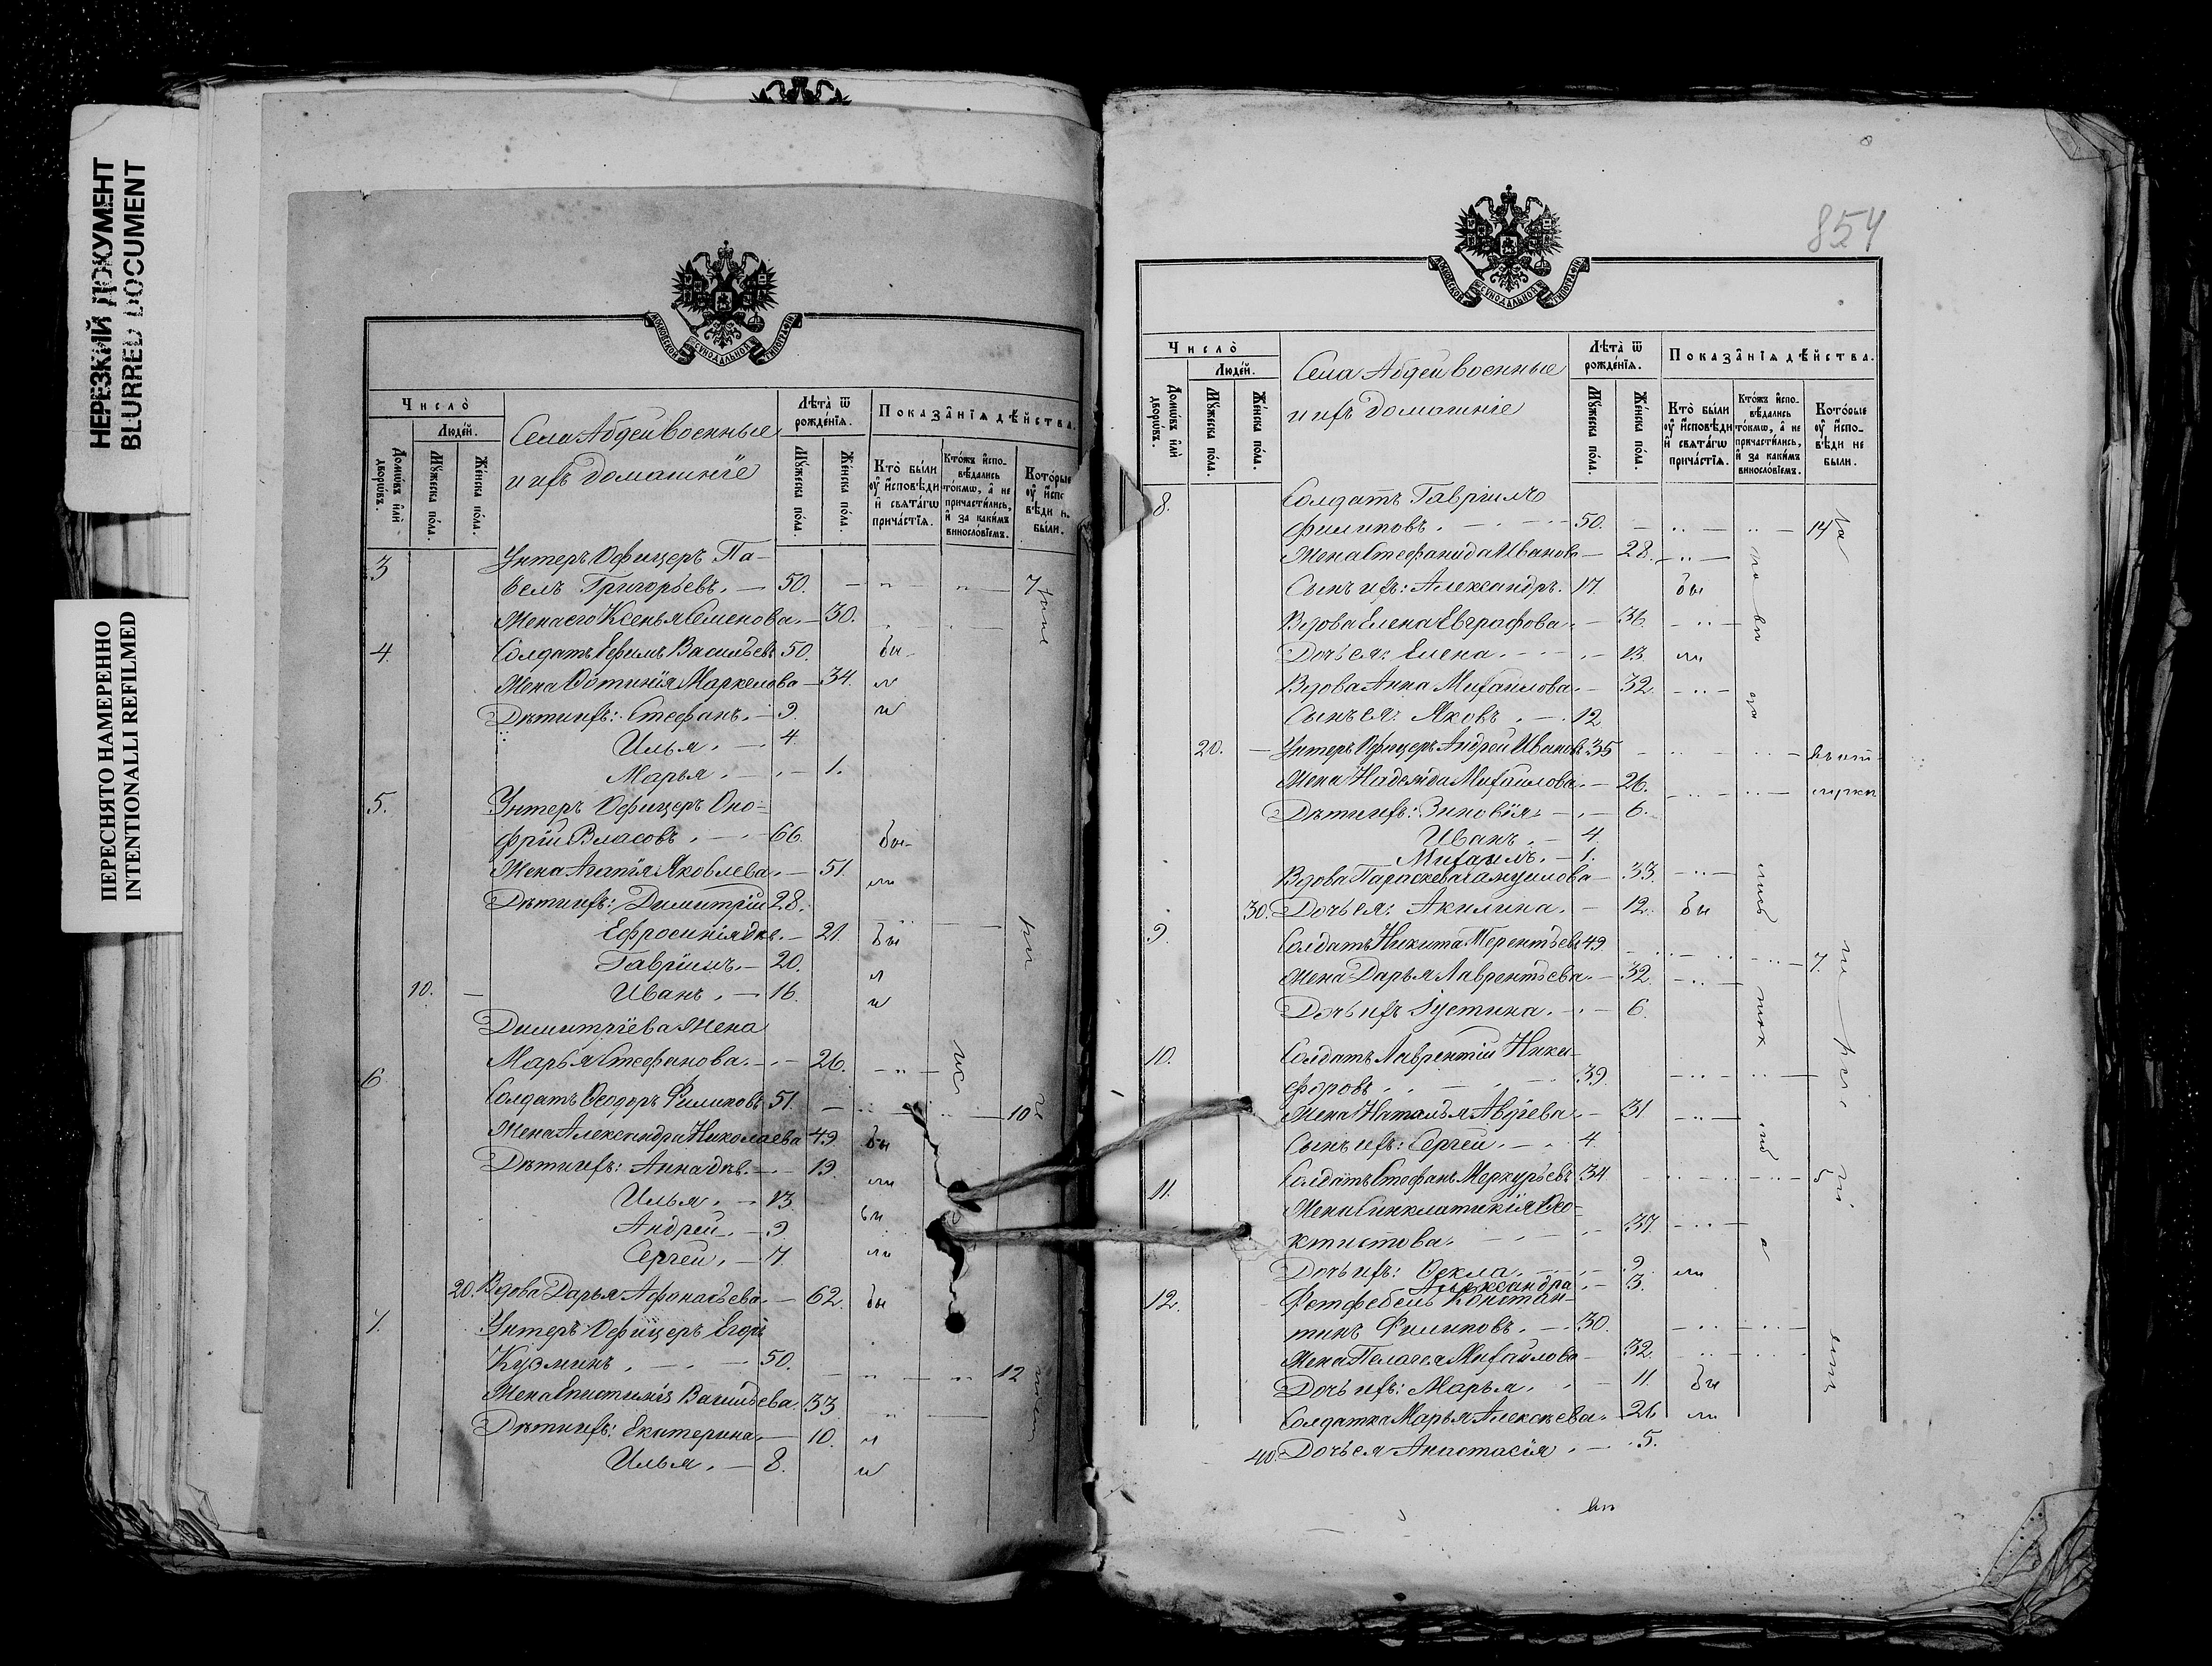 НЕРЕЗКИЙ ДОКУМЕНТ
BLURRED DOCUMENT
ПЕРЕСНЯТО НАМЕРЕННО
INTENTIONALLI REFILMED
МОСКОВСКОЙ СУНОДАЛЬНОЙ ТИПОГРАФІИ
Число̀
Людей.
Домѡвъ и҆лѝ дворѡвъ.
Мꙋ́жеска по́ла.
Же́нска по́ла.
Села Абдеи военные
и ихъ домашніе
Лѣта̀ ѿ рожде́нїѧ.
Мꙋ́жеска по́ла.
Же́нска по́ла.
Показа̑нїѧ дѣ́йства.
Кто̀ бы́ли ᲂу҆ и҆сповѣ́ди и҆ свѧта́гѡ прича́стїѧ.
Кто́жъ и҆спо-
вѣ́дались
то́кмѡ, а҆ не
причасти́лись,
и҆ за каки́мъ
винослові́емъ.
Кото́рые
ᲂу҆ и҆спо
вѣ́ди н.
бы́ли.
3 Унтеръ Офицеръ Па-
велъ Григорьевъ. — 50. — „ — „ — 7
Жена его Ксенья Семенова. — 30.
4. Солдатъ Ефимъ Васильевъ 50. бы-
Жена Фотинія Маркелова — 34. ли
Дѣти ихъ: Стефанъ. — 9. и
Илья. — 4.
Марья. — . — 1.
5. Унтеръ Офицеръ Оно-
фрій Власовъ. — 66. бы-
Жена Агапія Яковлева. — 51. ли
Дѣти ихъ: Димитрій 28.
Ефросинія дѣв. — 21. бы
Гавріилъ. — 20. л
10. — Иванъ. — 16. и
Димитріева жена
Марья Стефанова. — . — 26. — „ —
6 Солдатъ Ѳеодоръ Филиповъ 51. — „ — „ — 10
Жена Александра Николаева 49. бы
Дѣти ихъ: Анна дѣв. — . — 19. ли
Илья. — 13. бы
Андрей. — 9.
Сергей. — 7. ли
20. Вдова Дарья Афонасьева. — 62. бы
7. Унтеръ Офицеръ Егоръ
Кузминъ. — . — 50. — „ — „ — 12
Жена Епистимія Васильева. 33. „ —
Дѣти ихъ: Екатерина. — 10. л
Илья. — 8. и
854
МОСКОВСКОЙ СУНОДАЛЬНОЙ ТИПОГРАФІИ
Число̀
Людей.
Домѡвъ и҆лѝ дворѡвъ.
Мꙋ́жеска по́ла.
Же́нска по́ла.
Села Абдеи военные
и ихъ домашніе
Лѣта̀ ѿ рожде́нїѧ.
Мꙋ́жеска по́ла.
Же́нска по́ла.
Показа̑нїѧ дѣ́йства.
Кто̀ бы́ли
ᲂу҆ и҆сповѣ́ди
и҆ свѧта́гѡ
прича́стїѧ.
Кто́жъ и҆спо-
вѣ́дались
то́кмѡ, а҆ не
причасти́лись,
и҆ за каки́мъ
винослові́емъ.
Кото́рые
ᲂу҆ и҆спо-
вѣ́ди не
бы́ли.
8. Солдатъ Гавріилъ
Филиповъ. — . — 50. — „ — „ — 14
Жена Стефанида Иванов. — 28. — „ —
Сынъ ихъ: Александръ. 17. бы
Вдова Елена Евграфова. — 36. — „ —
Дочь ея: Елена. — . — 13. ли
Вдова Анна Михаилова. — 32. — „ —
Сынъ ея: Яковъ. — . 12
20. — Унтеръ Офицеръ Андрей Ивановъ 35 — „ — „ —
Жена Надежда Михаилова. — 26. — „ — „ —
Дѣти ихъ: Зиновія. — . — 6.
Иванъ. — 4.
Михаилъ. — 1.
Вдова Параскева Самуилова — 33. — „ —
30. Дочь ея: Акилина. — 12. бы
9. Солдатъ Никита Терентьевъ 49. — „ — „ — 7.
Жена Дарья Лаврентьева. — 32. — „ —
Дочь ихъ Іустина. — . — 6.
10. Солдатъ Лаврентій Ники-
форовъ. — . — 39. — „ — „ —
Жена Наталья Авдіева. — 31 — „ —
Сынъ ихъ: Сергей. — . 4.
11. Солдатъ Стефанъ Меркурьевъ 34 — „ — „ — „ —
Жена Синклитикія Ѳео-
ктистова. — . — 37. — „ —
Дочь ихъ: Ѳекла. — . — 9. ли
Александра. — 3.
12. Фетфебель Констан-
тинъ Филиповъ. — 30. — „ — „ —
Жена Пелагея Михаилова — 32. — „ —
Дочь ихъ: Марья. — 11. бы
Солдатка Марья Алексѣева. — 26 ли
40. Дочь ея Анастасія. — . 5.